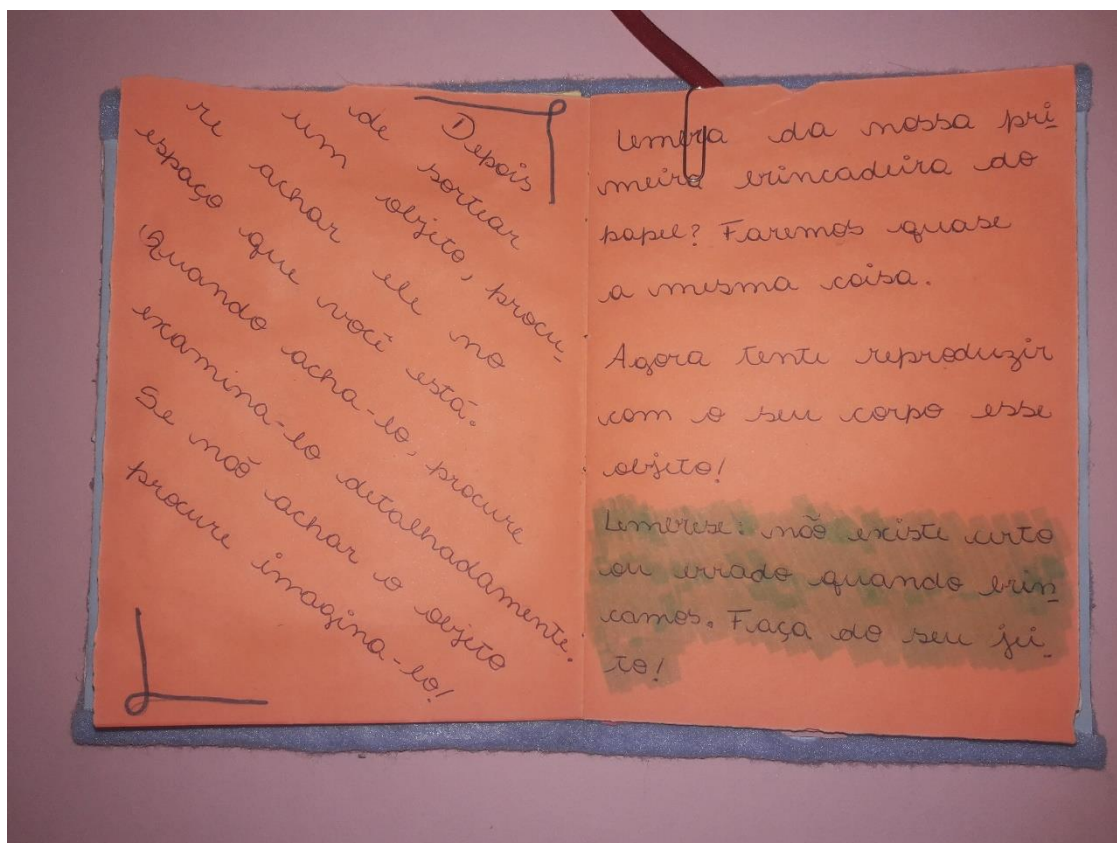 Depois
de sortear
um objeto, procu-
re achar ele no
espaço que você está.
Quando acha-lo, procure
examina-lo detalhadamente.
Se não achar o objeto
procure imagina-lo!
Lembra da nossa pri-
meira brincadeira do
papel? Faremos quase
a mesma coisa.
Agora tente reproduzir
com o seu corpo esse
objeto!
Lembrese: não existe certo
ou errado quando brin-
camos. Faça do seu jei-
to!